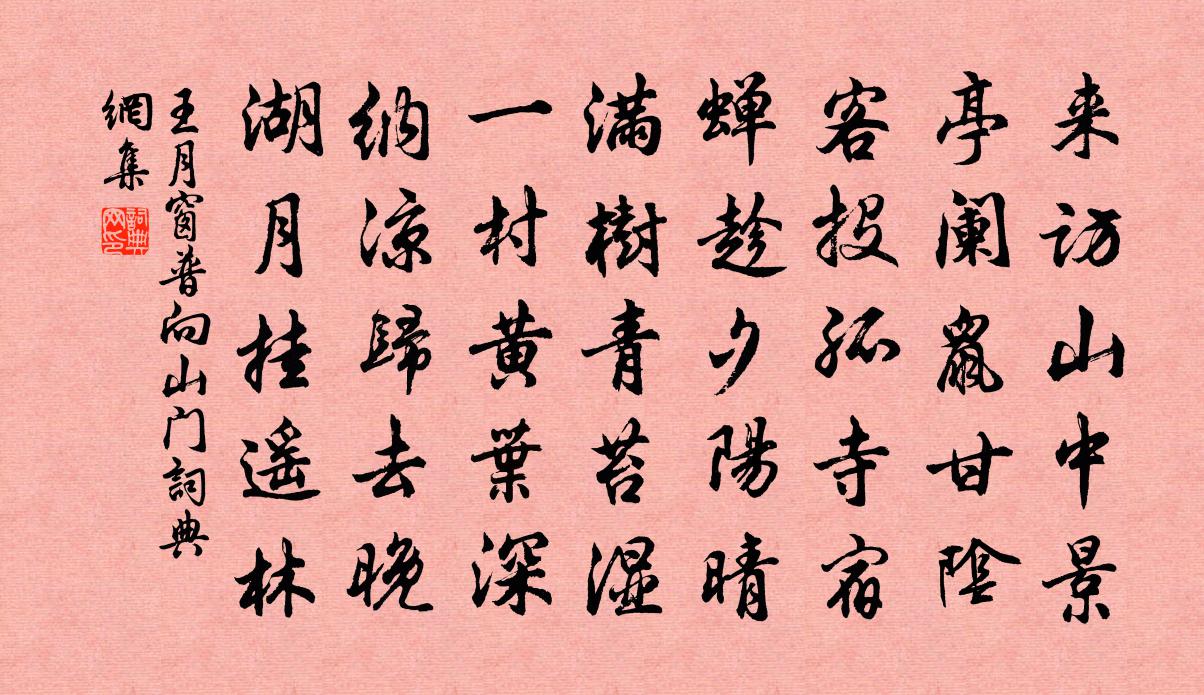 来访山中景
亭阑鼠甘陰
客投孤寺宿
蝉趁夕陽晴
满樹青苔湿
一村黄葉深
纳凉歸去晚
湖月挂遥林
王月窗普向山门詞典
網集
詞典
网印